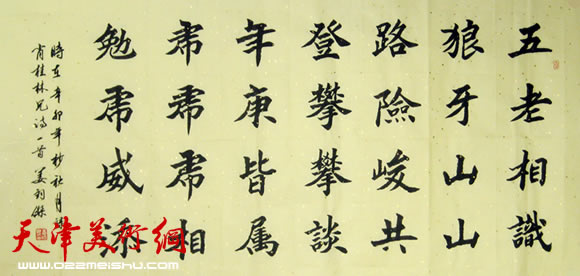 五老相識
狼牙山山
路險峻共
登攀攀談
年庚皆属
虎虎虎相
勉虎威添
時在辛卯年杪秋月錄
肖桂林兄詩一首
天津美術網
www.022meishu.com